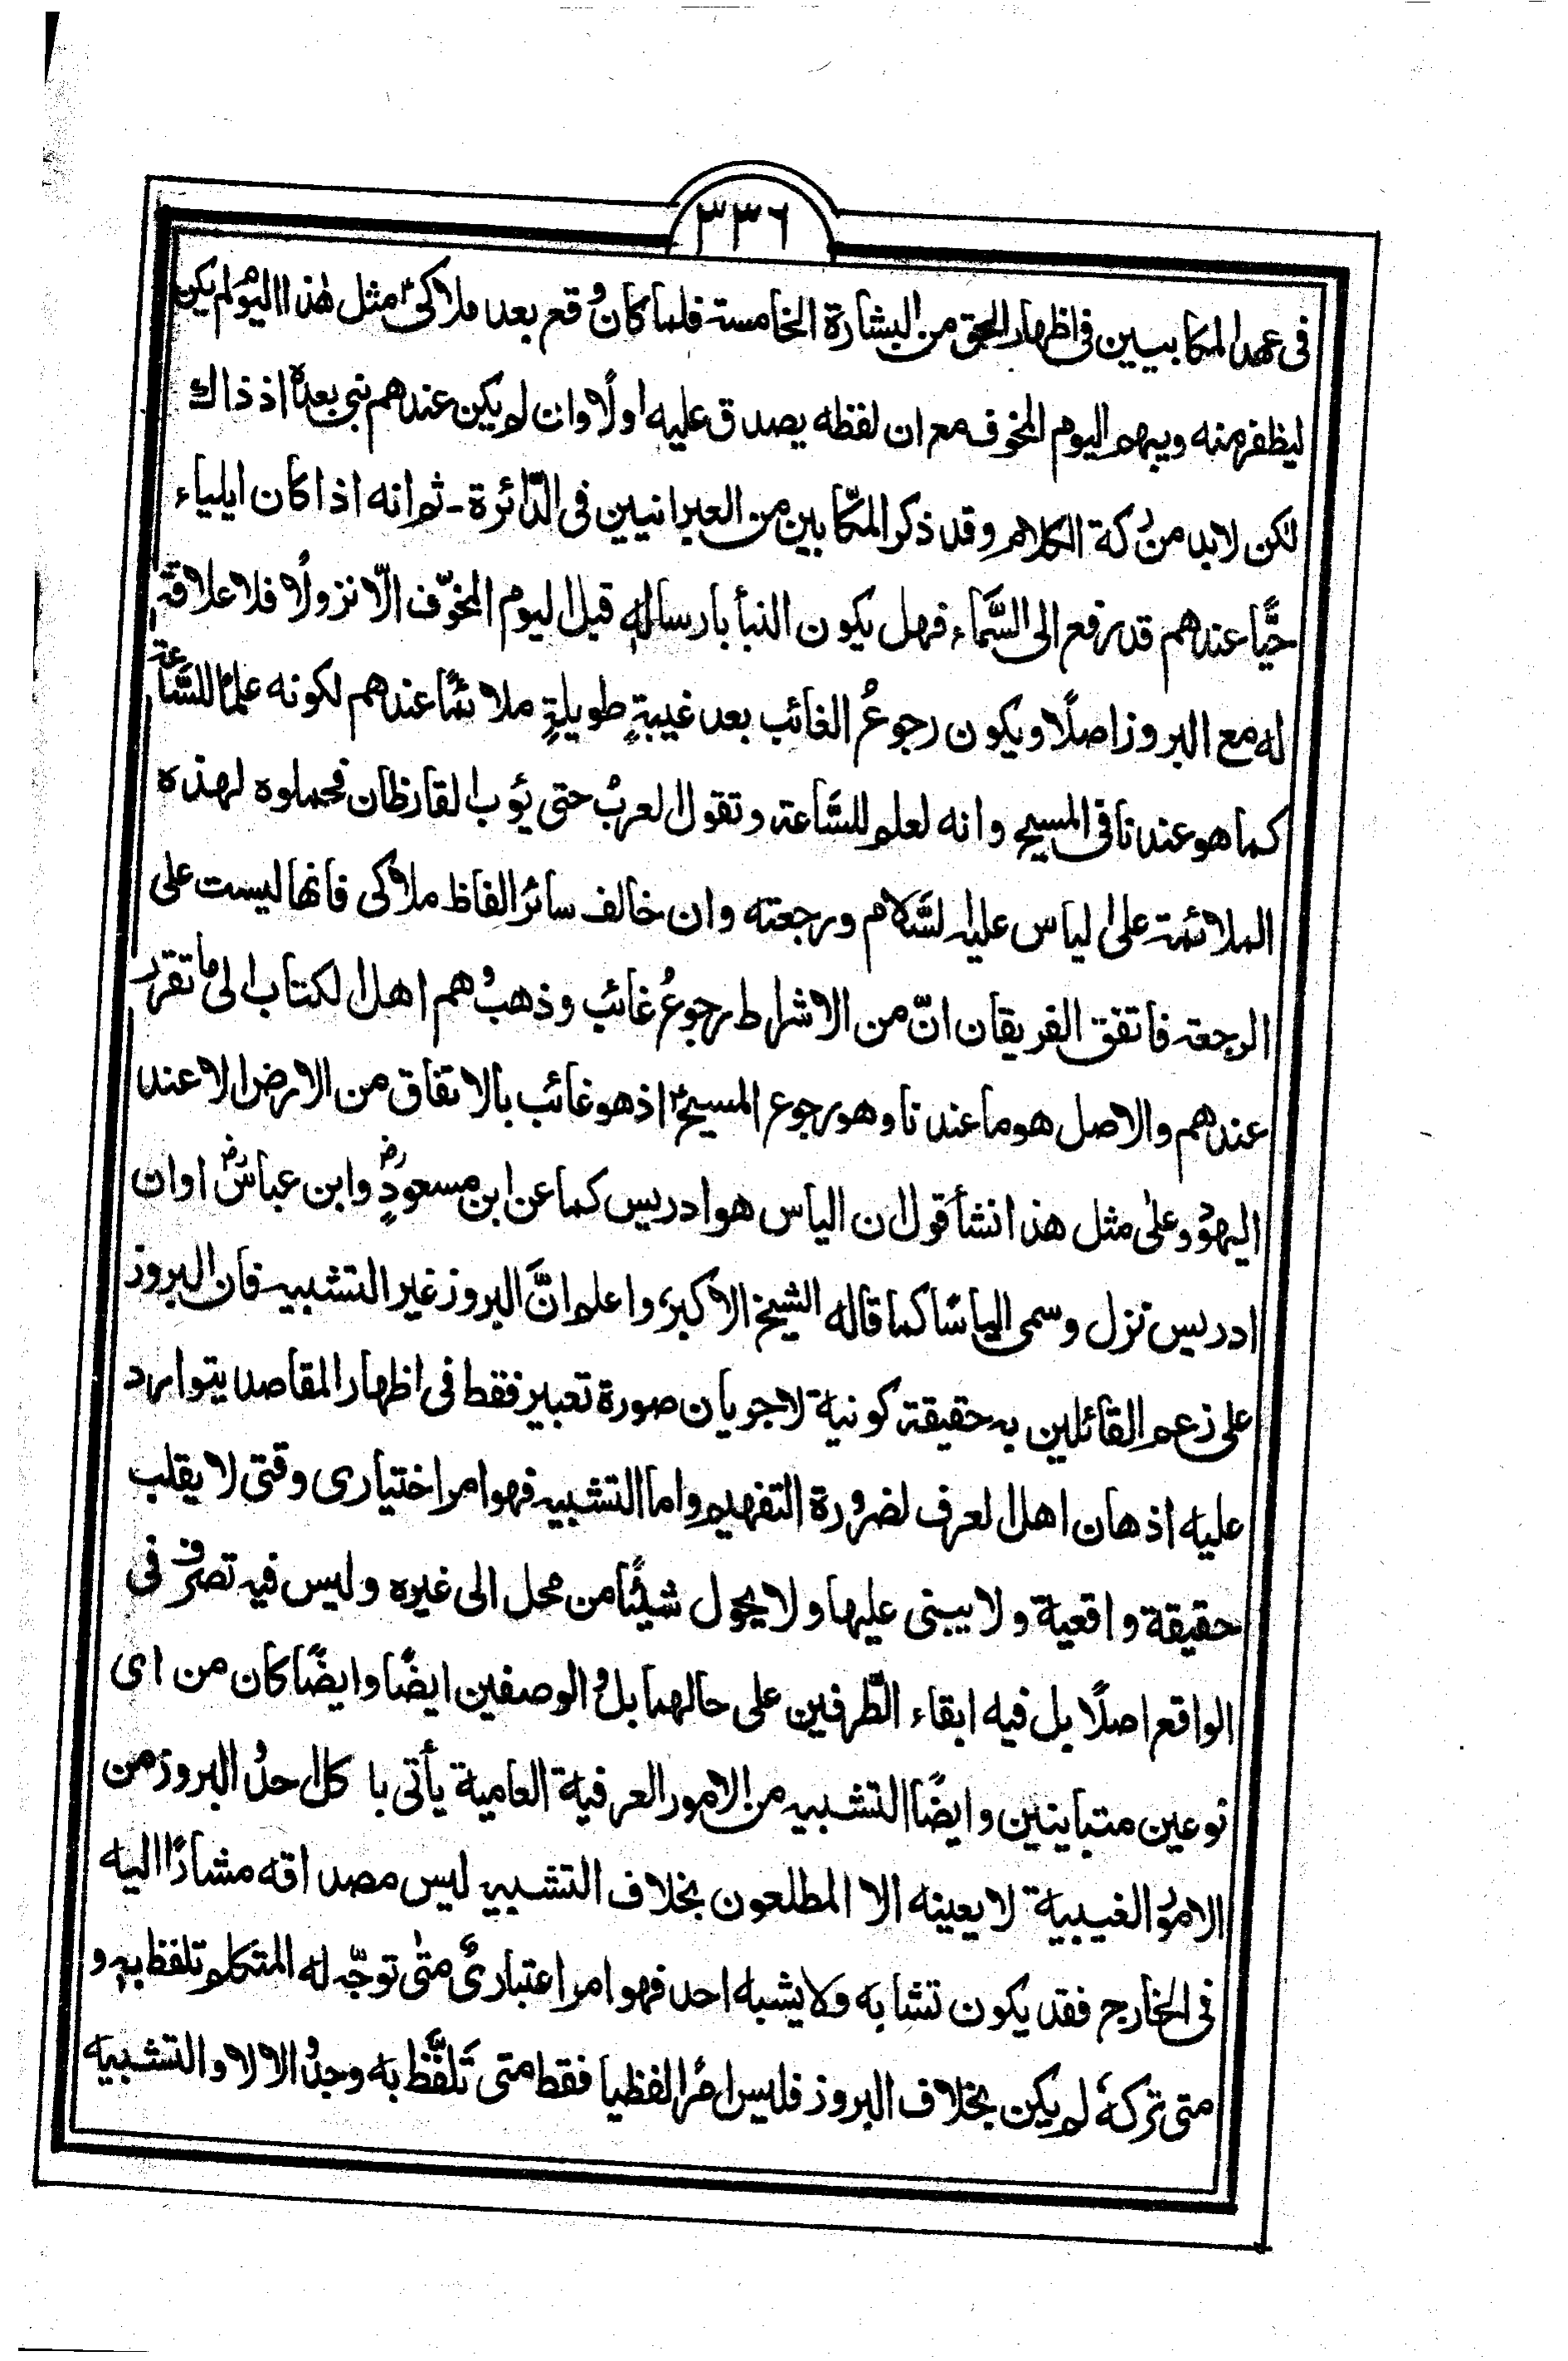 ٣٣٦
فی عهد المکابیین فی اظهار الحق من البشارة الخامسة فلما کان وقع بعد ملاکیؑ مثل هٰذا الیوم لم یکن
لیظفر منه ویبهم الیوم المخوف مع ان لفظه یصدق علیه اولًا وان لم یکن عندهم نبی بعدہ اذ ذاك
لٰکن لابد من رکة الکلام وقد ذکر المکّابین من العبرانیین فی الدّائرة ـ ثم انه اذا کان ایلیاء
حیًّا عندهم قد رفع الی السَّماء فهل یکون النبأ بارساله قبل الیوم المخوّف الّا نزولًا فلا علاقة
له مع البروز اصلًا ویکون رجوعُ الغائب بعد غیبةٍ طویلةٍ ملائمًا عندهم لکونه علمًا للسَّاعة
کما هو عندنا فی المسیح وانه لعلم للسَّاعة وتقول العرب حتی یؤب القارظان فحملوہ لهذہ
الملائمة علیٰ الیاس علیه السَّلام ورجعته وان خالف سائر الفاظ ملاکی فانها لیست علی
الرجعة فاتفق الفریقان انّ من الاشراط رجوعُ غائب وذهب وهم اهل الکتاب الی ما تقرر
عندهم والاصل هو ما عندنا وهو رجوع المسیحؑ اذ هو غائب بالاتفاق من الارض الا عند
الیهود وعلیٰ مثل هذا نشأ قول ان الیاس هو ادریس کما عن ابن مسعودٍؓ وابن عباسؓ اوان
ادریس نزل وسمی الیاسًا کما قاله الشیخ الاکبر، واعلم انَّ البروز غیر التشبیه فان البروز
علی زعم القائلین به حقیقة کونیة لا جریان صورة تعبیر فقط فی اظهار المقاصد یتوارد
علیه اذهان اهل العرف لضرورة التفهیم واما التشبیه فهو امر اختیاری وقتی لا یقلب
حقیقة واقعیة ولا یبنی علیها ولا یحول شیئًا من محل الی غیرہ ولیس فیه تصرف فی
الواقع اصلًا بل فیه ابقاء الطّرفین علی حالهما بل والوصفین ایضًا وایضًا کان من ای
نوعین متباینین وایضًا التشبیه من الامور العرفیة العامیة یأتی با کل احد والبروز من
الامور الغیبیة لا یعینه الا المطلعون بخلاف التشبیه لیس مصداقه مشارًا الیه
فی الخارج فقد یکون تشابه ولا یشبه احد فهو امر اعتباریٌ متیٰ توجّه له المتکلم تلفظ به و
متی ترکهٗ لم یکن بخلاف البروز فلیس امرًا لفظیا فقط متی تَلفَّظ به وجد والا لا والتشبیه